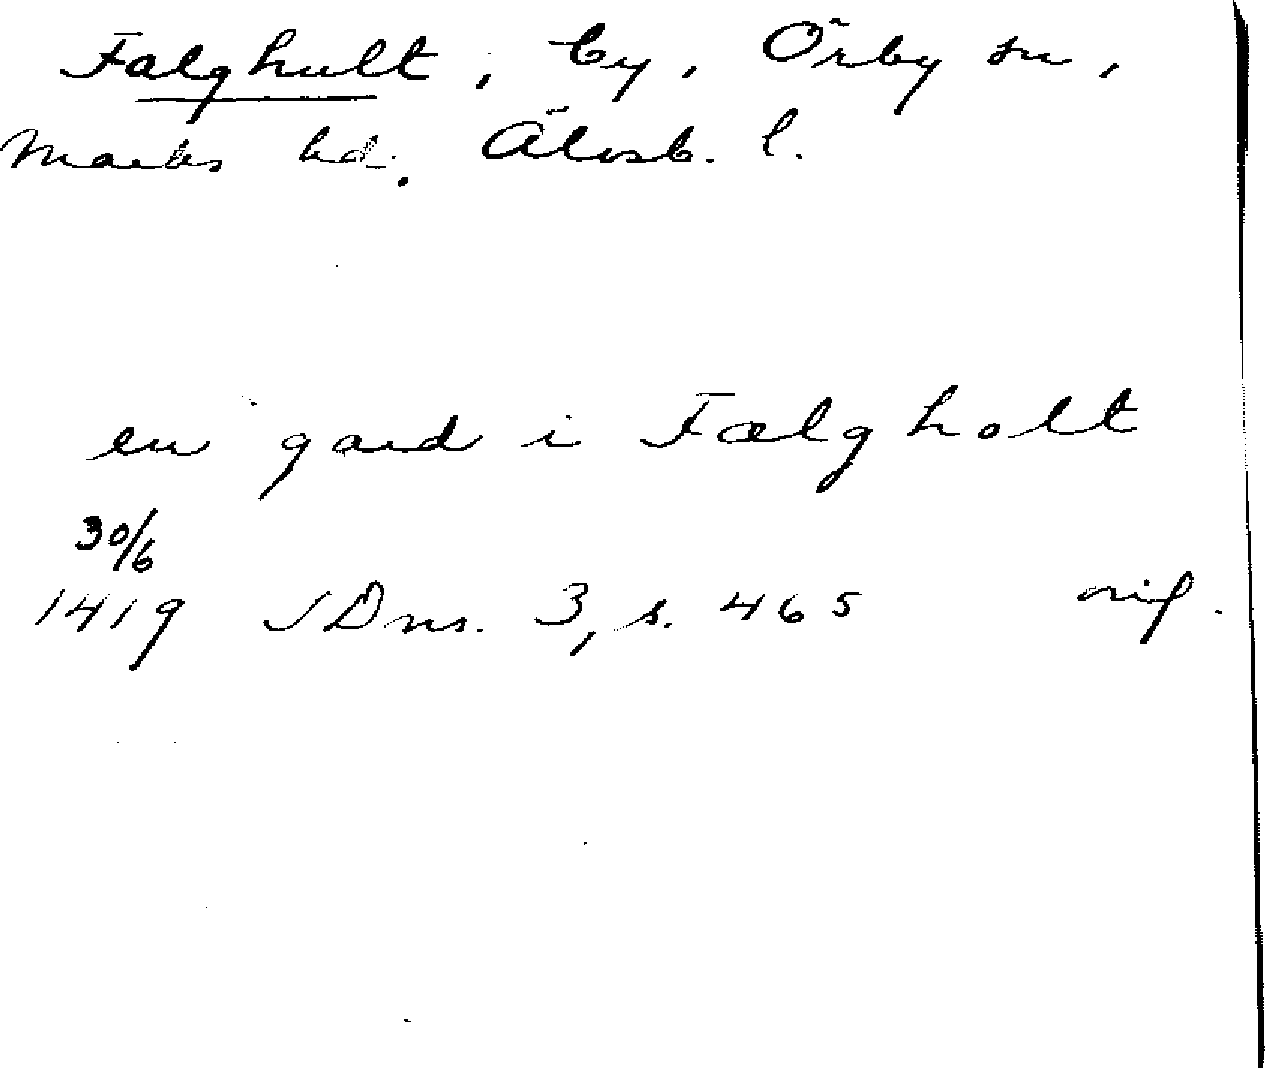 Falghult, by, Örby sn,
Marks hd. Älvsb. l.
en gard i Fælgholt
30/6
1419 SDns. 3, s. 465 orig.